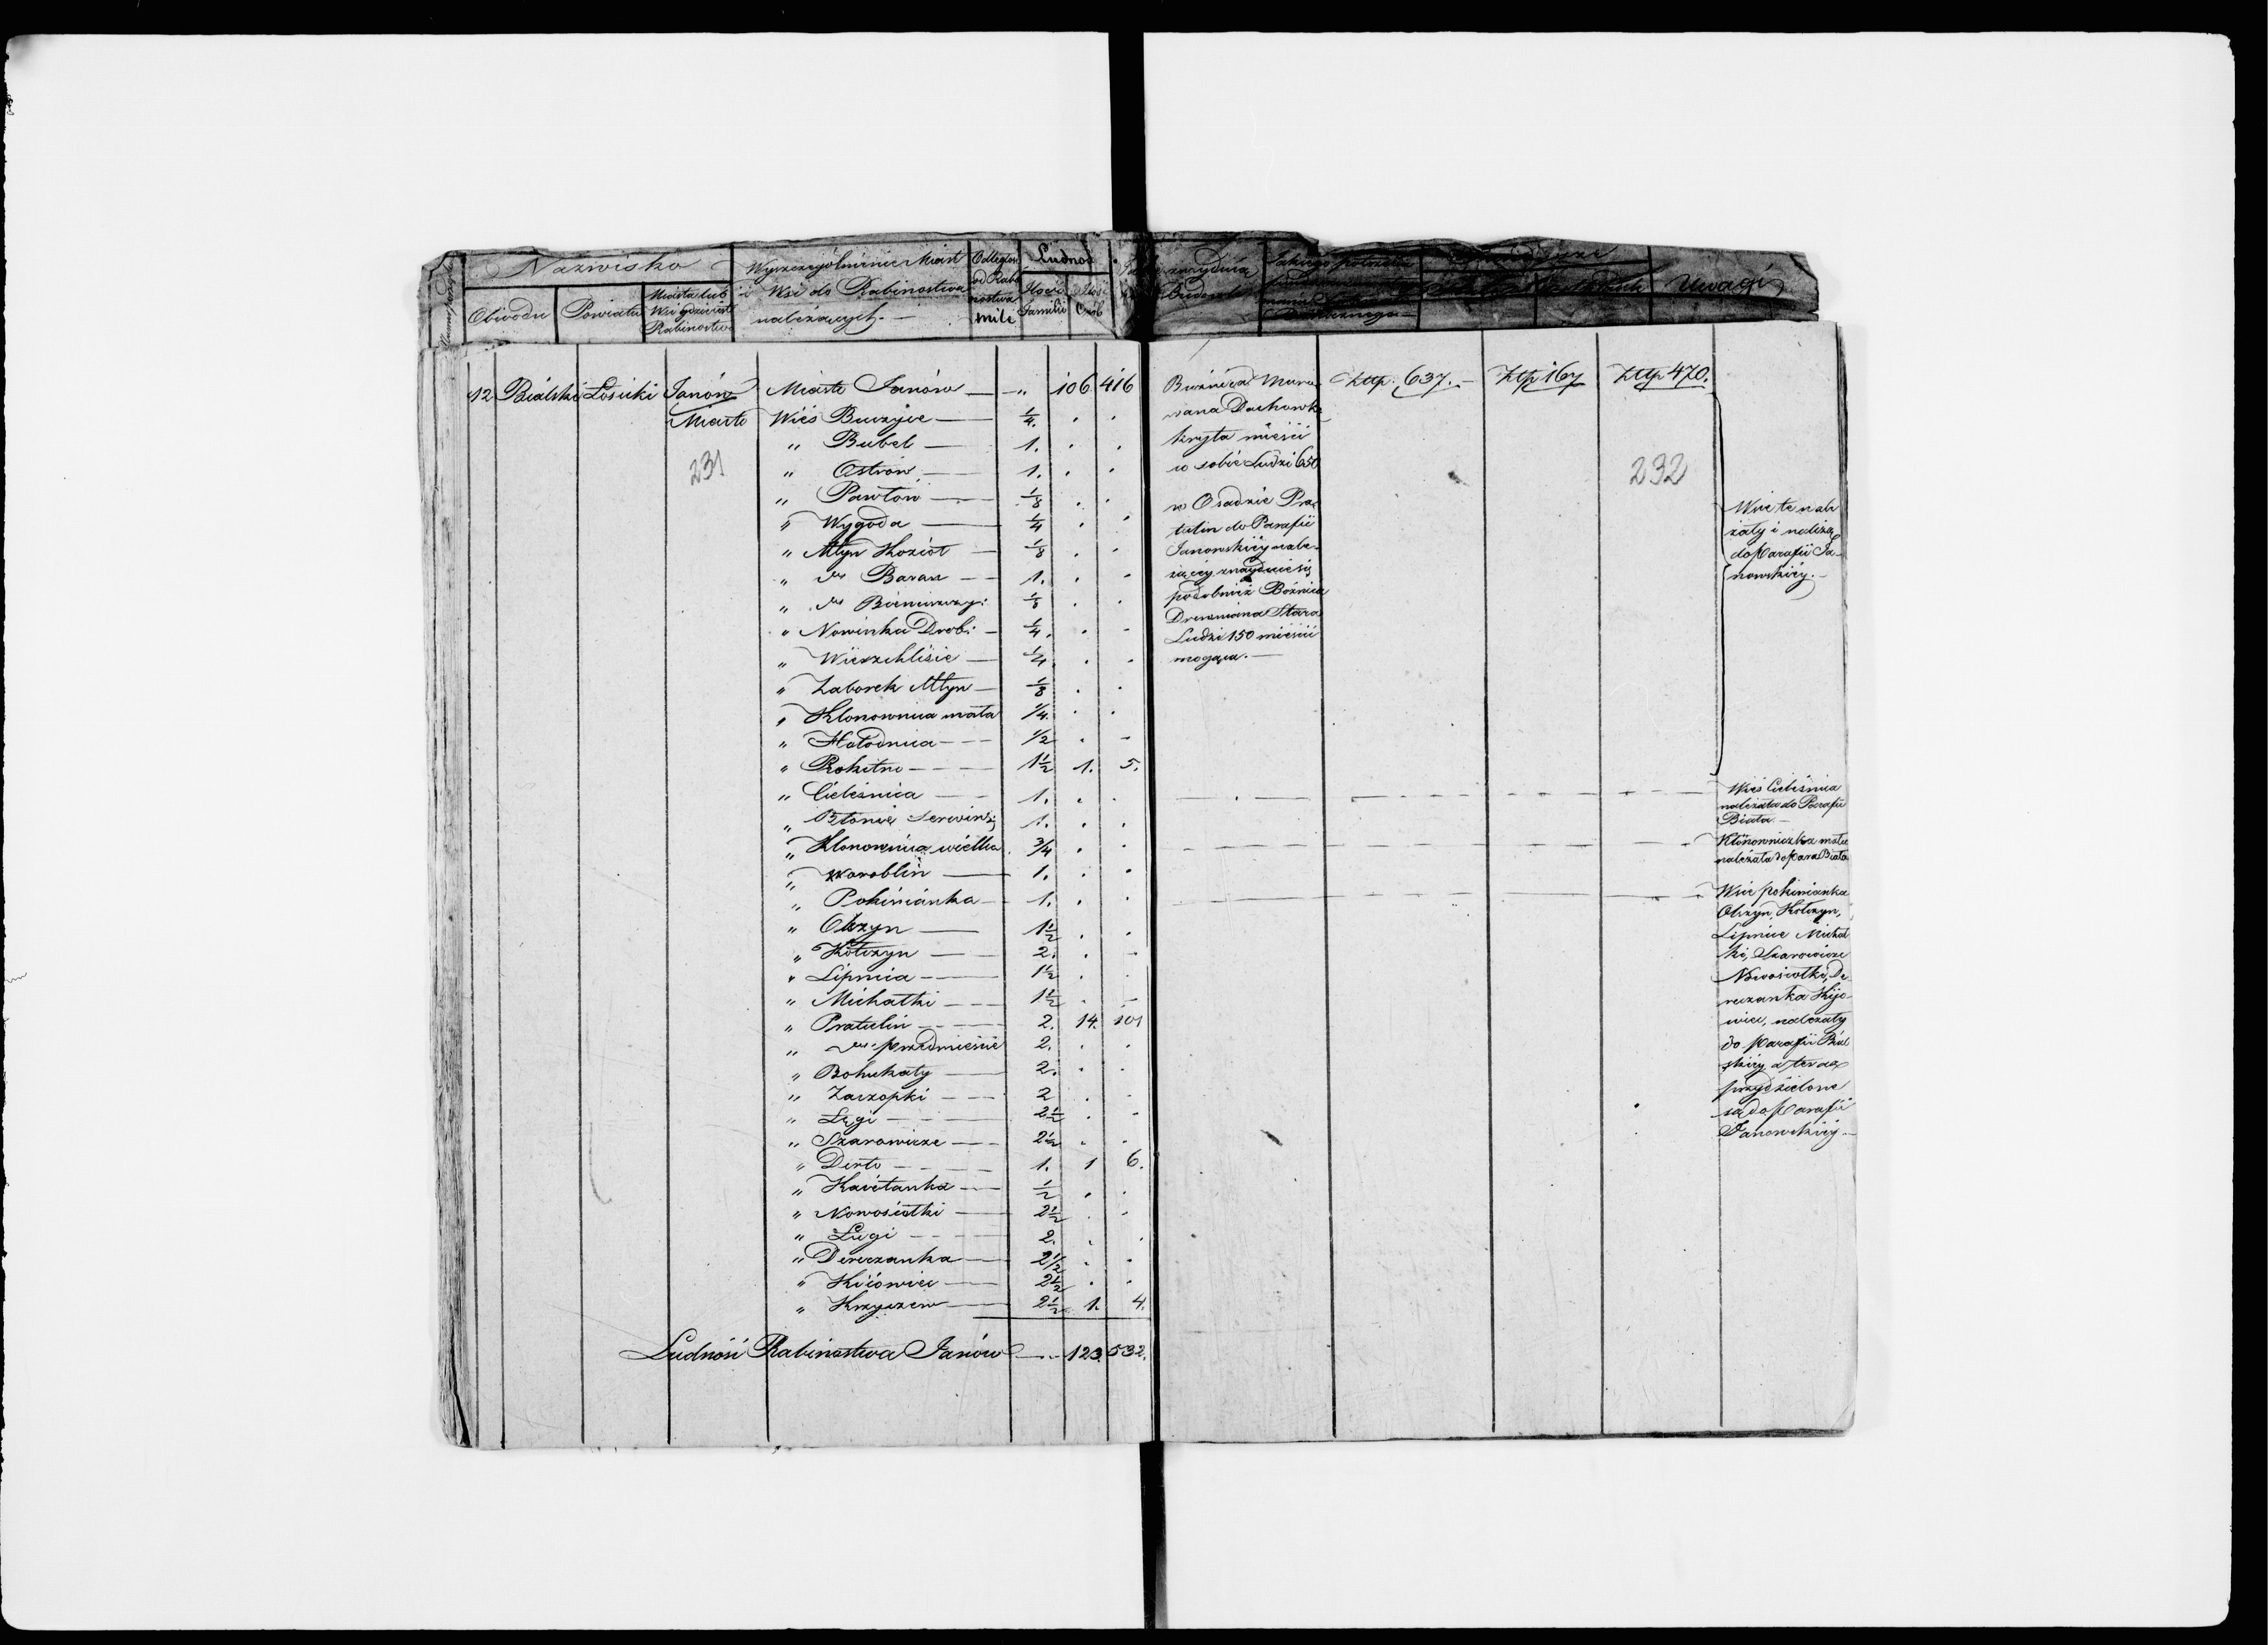 Nazwisko
Obwodu
Powiatu
Miasta lub
Wsi gdzie iest
Rabinostwo
Wyszczególnienie Miast
i Wsi do Rabinostwa
należących. —
Odległość
od Rabi
nostwa
mile
Ludność
Ilość
Familii
Ilość
Osób
Uwagi
12 Bialski Łosicki Janów Miasto Janów — „ 106 416
Miasto Wieś Buczyce — 1/4. . .
231
„ Bubel — 1. . .
„ Ostrów — 1. . .
„ Pawłów — 1/8 . .
„ Wygoda — 1/4 . .
„ Młyn Kozioł — 1/8 . .
„ dto Baran — 1. . .
„ dto Bieniaszczy: 1/8 . .
„ Nowinka Drob: — 1/4. . .
„ Wierzchlisie — 1/4. . .
„ Zaborek Młyn — 1/8 . .
„ Klonownica mała 1/4. . .
„ Hołodnica — 1/2 . -
„ Rokitno — 1 1/2 1. 5.
„ Cieleśnica — 1. . .
„ Błonie Serwins: 1. . .
„ Klonownica wielka 3/4 . .
„ Woroblin — 1. . .
„ Pokinianka — 1. . .
„ Olszyn — 1 1/2 . .
„ Kołczyn — 2. . -
„ Lipnica — 1 1/2 . .
„ Michałki — 1 1/2 . -
„ Pratulin — 2. 14. 101
„ dto przedmieście 2. . .
„ Bohukały — 2. . .
„ Zaczopki — 2 . .
„ Łęgi — 2 1/2 . .
„ Szarowicze — 2 1/2 . .
„ Derło — 1. 1 6.
„ Kaietanka — 1/2 . .
„ Nowosiołki — 2 1/2 . .
„ Ługi — 2. . .
„ Dereczanka — 2 1/2 . .
„ Kiiowiec — 2 1/2 . .
„ Krzyczew — 2 1/2 1. 4.
Ludność Rabinostwa Janów — 123. 532.
Bużnica Muro
wana Dachówką
kryta mieści
w sobie Ludzi 650
w Osadzie Pra
tulin do Parafii
Janowskiéy nale-
żącey znayduie się
podobnież Bóżnica
Drewniana Stara
Ludzi 150 mieścić
mogąca. —
Złtp. 637. —
Złtp 167
Złtp 470.
232
Wsie te nale
żały i należą
do Parafii Ja-
nowskiéy. —
Wieś Cieleśnica
należała do Parafii
Biała —
Klonowniczka mała
należała do Para Biała
Wsie pokinianka
Olszyn, Kołczyn,
Lipnica Michał
ki, Szarowicze
Nowosiołki, De
reczanka Kijo-
wiec, należały
do Parafii Bial
skiéy a teraz
przydzielone
są do Parafii
Janowskiéy —